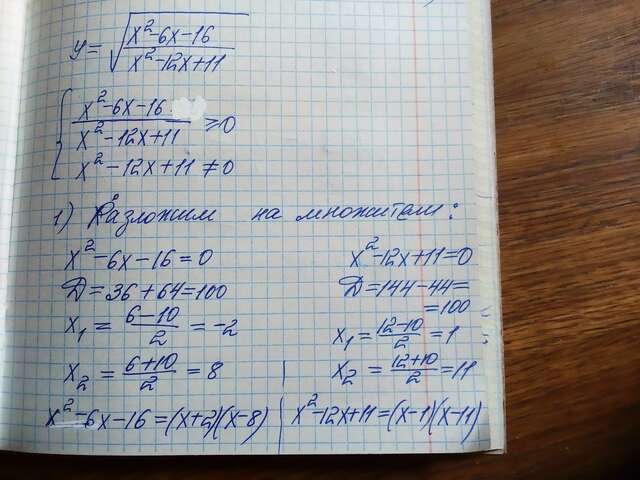 y = √((x²-6x-16)/(x²-12x+11))
{ (x²-6x-16)/(x²-12x+11) ≥ 0
x²-12x+11 ≠ 0
1) Разложим на множители:
x²-6x-16=0
Д=36+64=100
x₁ = (6-10)/2 = -2
x₂ = (6+10)/2 = 8
x²-6x-16=(x+2)(x-8)
x²-12x+11=0
Д=144-44=
=100
x₁ = (12-10)/2 = 1
x₂ = (12+10)/2 = 11
x²-12x+11=(x-1)(x-11)